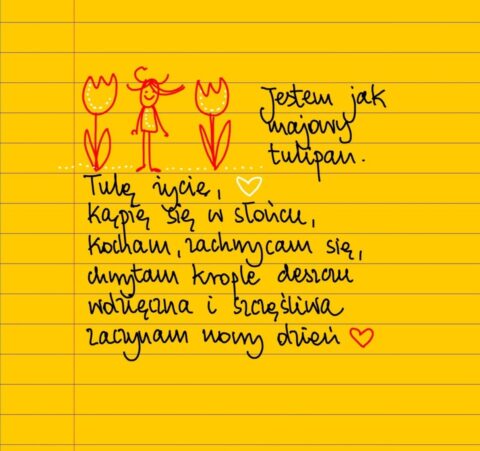 Jestem jak
majowy
tulipan.
Tulę życie,
kąpię się w słońcu,
kocham, zachwycam się,
chwytam krople deszczu
wdzięczna i szczęśliwa
zaczynam nowy dzień